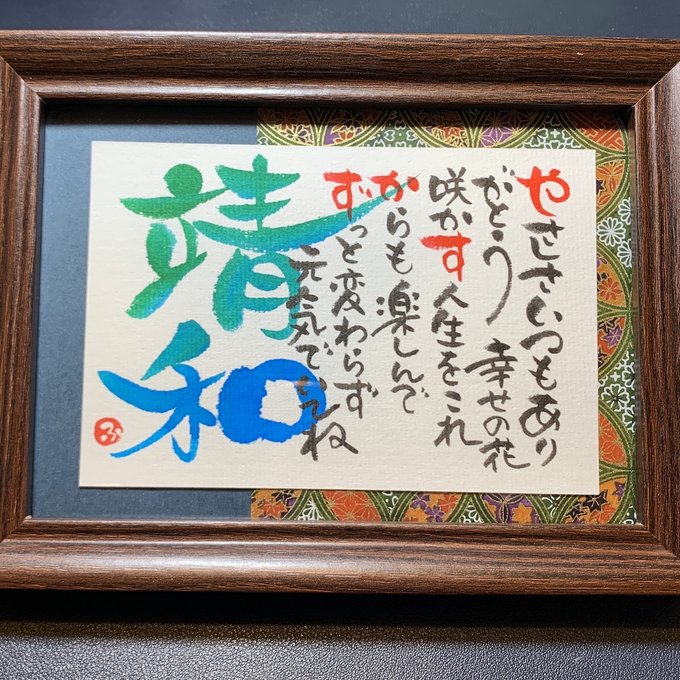 やさしさいつもあり
がとう 幸せの花
咲かす人生をこれ
からも楽しんで
ずっと変わらず
元気でいてね
靖和